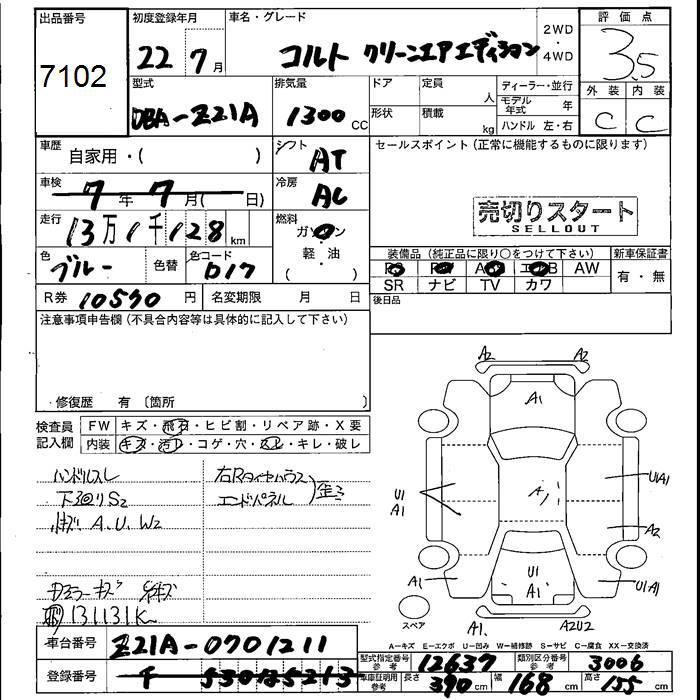 出品番号
7102
初度登録年月
22 7月
車名・グレード
コルト クリーンエアエディション
2WD
・
4WD
評価点
3.5
外装 内装
C C
型式
DBA-Z21A
排気量
1300 cc
ドア
形状
定員
人
積載
kg
ディーラー・並行
モデル年式 年
ハンドル 左・右
車歴
自家用・( )
シフト
AT
セールスポイント(正常に機能するものに限ります)
売切りスタート
SELLOUT
車検
7年7月( 日)
冷房
AC
走行
13万1千128km
燃料
ガソリン
軽・油
( )
色
ブルー
色替
色コード
D17
装備品(純正品に限り○をつけて下さい)
PS PW AB エアB AW
SR ナビ TV カワ
新車保証書
有・無
R券 10590円
名変期限 月 日
後日品
注意事項申告欄(不具合内容等は具体的に記入して下さい)
修復歴 有〔箇所 〕
検査員
記入欄
FW キズ・飛石・ヒビ割・リペア跡・X要
内装 キズ・汚レ・コゲ・穴・スレ・キレ・破レ
ハンドルスレ
下廻りS2
キズ A.U.W2
右Rタイヤハウス
エンドパネル
歪ミ
131131K
A2 A2
A1
U1A1
U1
A1
A2
A1
U1
A1
U1A1
スペア
A1. A2U2
A=キズ E=エクボ U=凹み W=補修跡 S=サビ C=腐食 XX=交換済
車台番号
Z21A-0701211
登録番号
型式指定番号
参考
12637
類別区分番号
参考
3006
車庫証明用
参考
長さ 390cm
幅 168cm
高さ 155cm